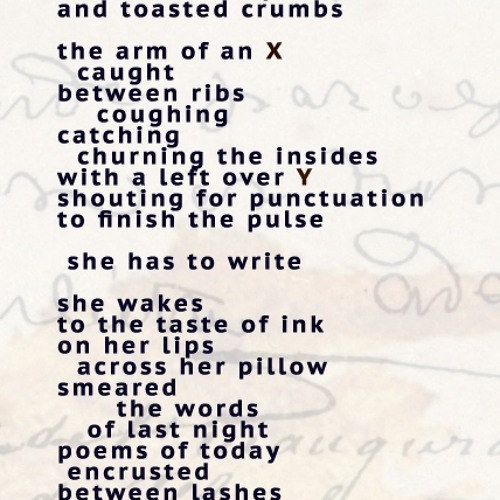 and toasted crumbs
the arm of an X
caught
between ribs
coughing
catching
churning the insides
with a left over Y
shouting for punctuation
to finish the pulse
she has to write
she wakes
to the taste of ink
on her lips
across her pillow
smeared
the words
of last night
poems of today
encrusted
between lashes